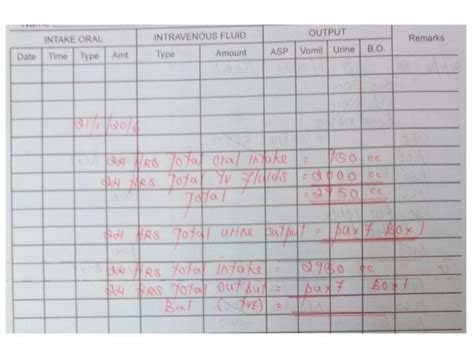 INTAKE ORAL INTRAVENOUS FLUID OUTPUT Remarks
Date Time Type Amt. Type Amount ASP Vomit Urine B.O.
24 HRS Total oral intake = 950 cc
24 HRS Total IV Fluids = 2000 cc
Total = 2950 cc
24 HRS Total urine output = pux7 Box1
24 HRS Total intake = 2950 cc
24 HRS Total output = pux7 Box1
Bal (+VE) =